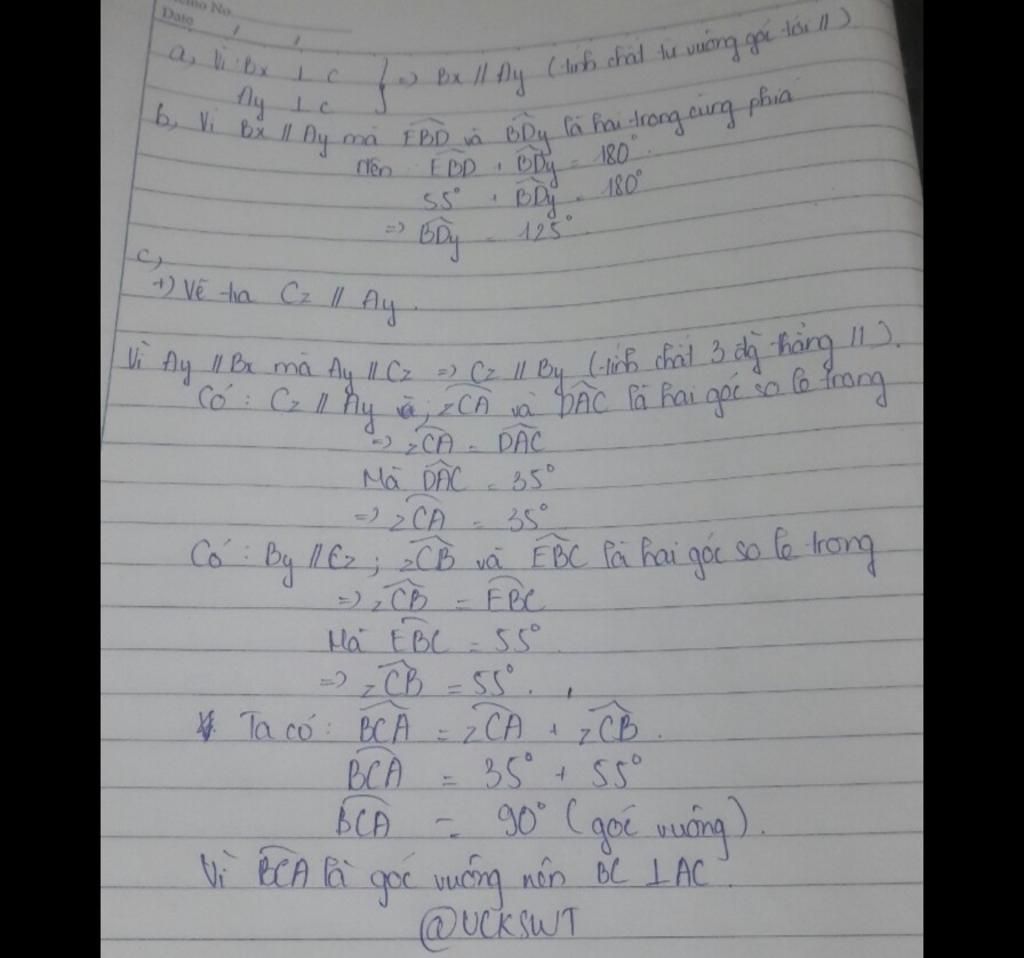 Memo No.
Date / /
a, Vì Bx ⊥ c } => Bx // Ay (tính chất từ vuông góc tới //)
Ay ⊥ c
b, Vì Bx // Ay mà EBD và BDy là hai trong cùng phía
Nên EBD + BDy = 180°
55° + BDy = 180°
=> BDy = 125°
c,
+) Vẽ tia Cz // Ay.
Vì Ay // Bx mà Ay // Cz => Cz // By (tính chất 3 đg thẳng //).
Có: Cz // Ay ; zCA và DAC là hai góc so le trong
=> zCA = DAC
Mà DAC = 35°
=> zCA = 35°
Có: By // Cz ; zCB và EBC là hai góc so le trong
=> zCB = EBC
Mà EBC = 55°
=> zCB = 55°.
Ta có: BCA = zCA + zCB.
BCA = 35° + 55°
BCA = 90° (góc vuông).
Vì BCA là góc vuông nên BC ⊥ AC.
@UCKSWT